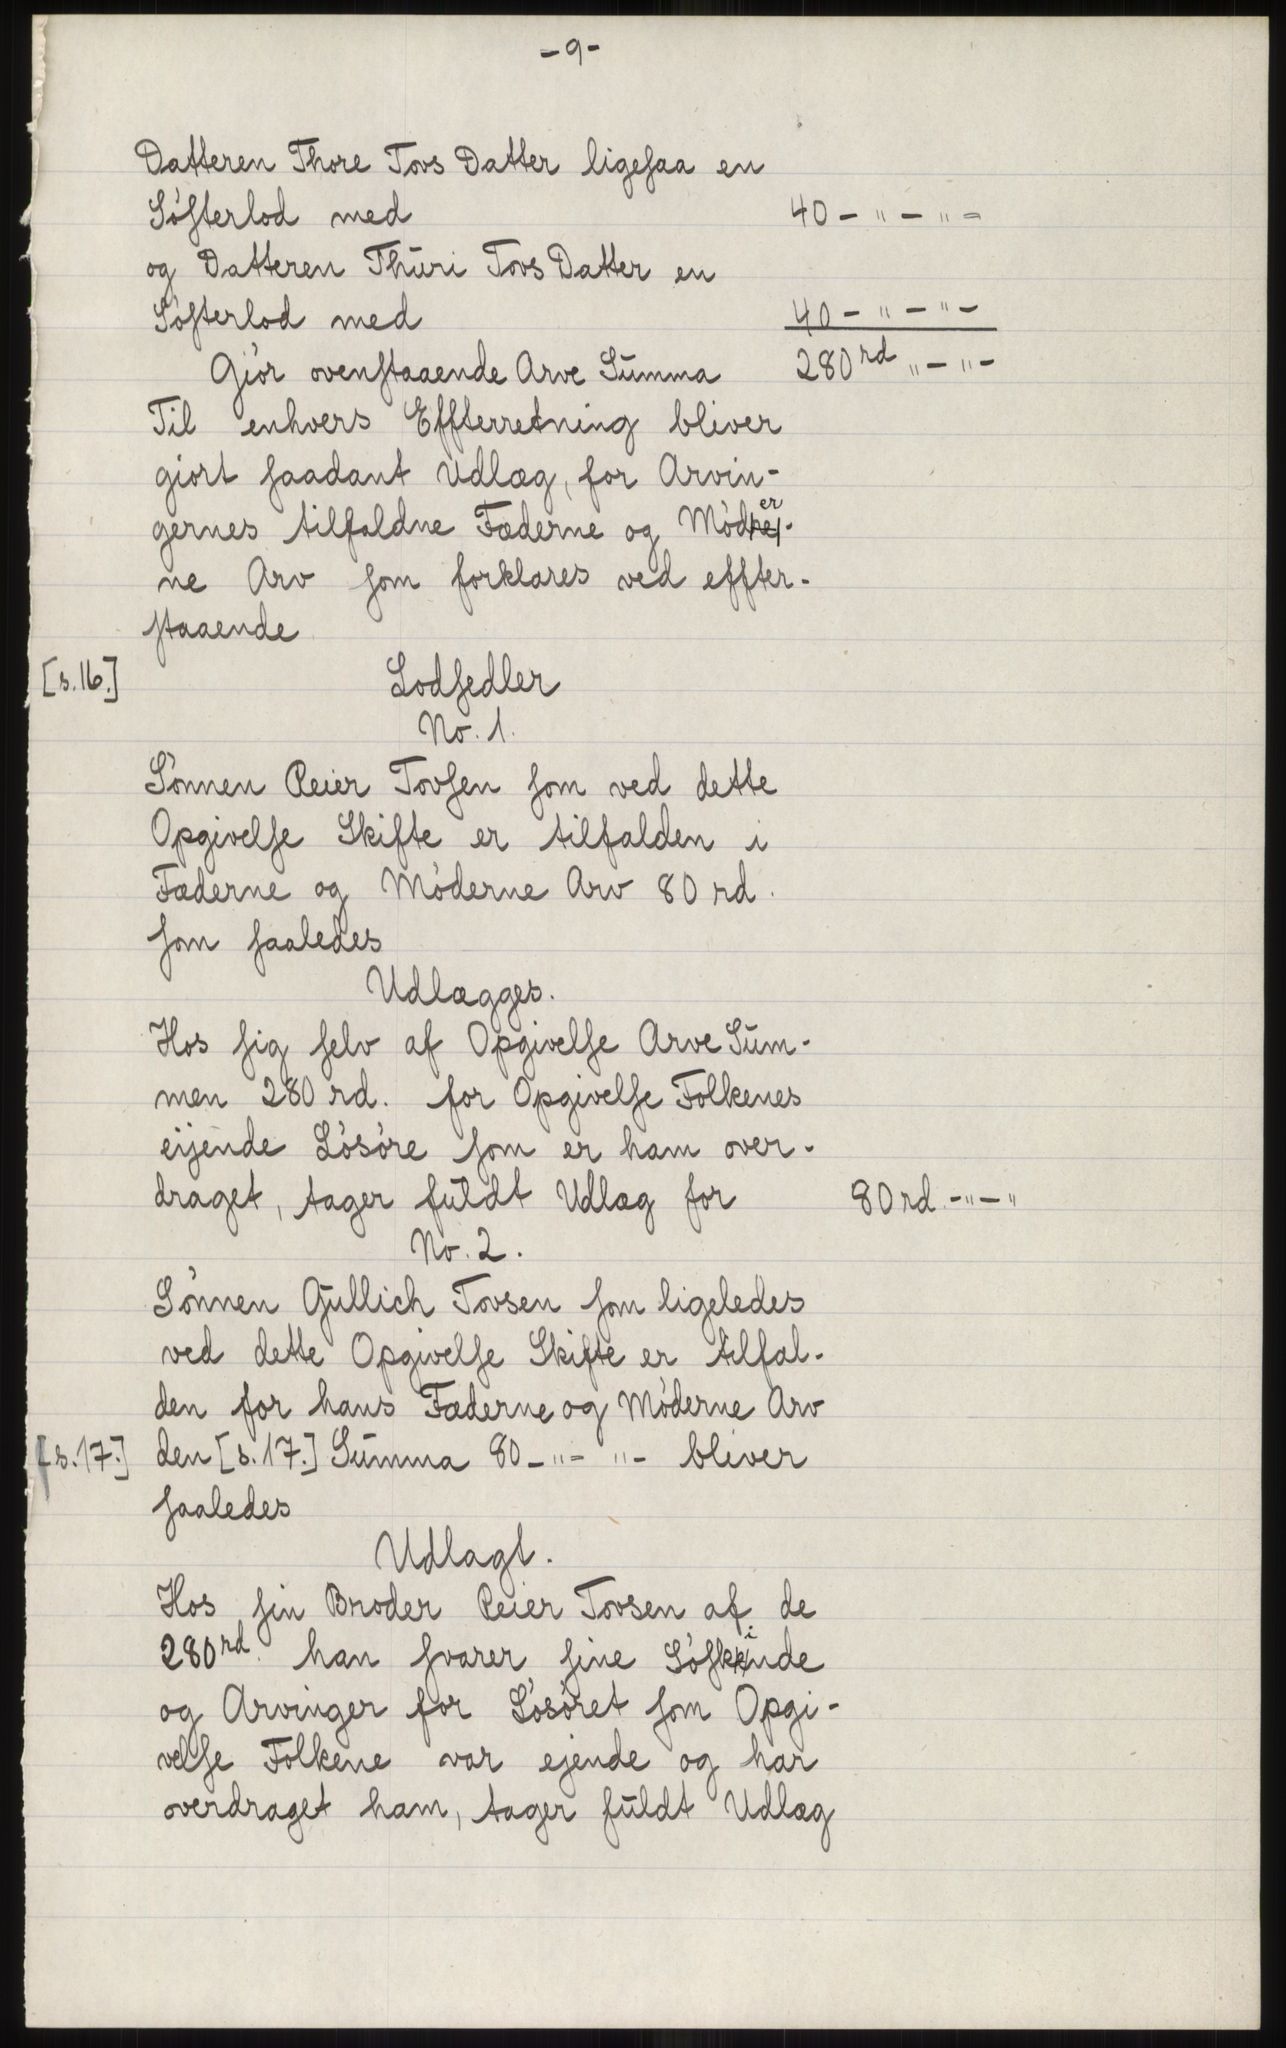 -9-
Datteren Thore Tovs Datter ligesaa en
Söfterlod med 40 - " - " -
og Datteren Thüri Tovs Datter en
Söfterlod med 40 - " - " -
Giör ovenstaaende Arve Summa 280 rd " - " -
Til enhvers Effterretning bliver
giort saadant Udlæg, for Arvin-
gernes tilfaldne Fæderne og Möder-
ne Arv som forklares ved effter-
staaende
[s.16.] Lodsedler
No. 1.
Sönnen Reier Tovsen som ved dette
Opgivelse Skifte er tilfalden i
Fæderne og Möderne Arv 80 rd.
som saaledes
Udlægges.
Hos sig selv af Opgivelse Arve Sum-
men 280 rd. for Opgivelse Folkenes
eijende Lösöre som er ham over-
draget, tager füldt Udlæg for 80 rd. - " - "
No. 2.
Sönnen Gullich Tovsen som ligeledes
ved dette Opgivelse Skifte er tilfal-
den for hans Fæderne og Möderne Arv
[s.17.] den [s.17.] Summa 80 - " - " - bliver
saaledes
Udlagt.
Hos sin Broder Reier Tovsen af de
280 rd. han svarer sine Söskinde
og Arvinger for Lösöret som Opgi-
velse Folkene var ejende og har
overdraget ham, tager füldt Udlæg